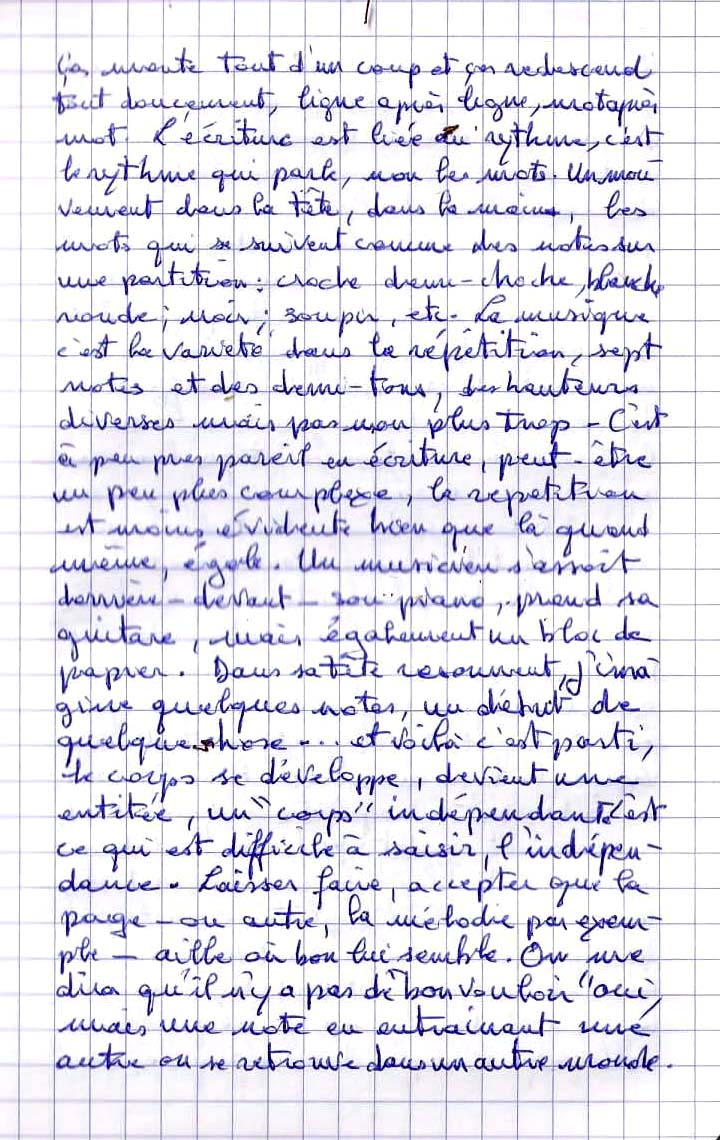 1
Ça monte tout d'un coup et ça redescend
tout doucement, ligne après ligne, mot après
mot. L'écriture est liée au rythme, c'est
le rythme qui parle, non les mots. Un mou
vement dans la tête, dans la main, les
mots qui se suivent comme des notes sur
une partition : croche demi-choche, blanche
ronde ; noir ; soupir, etc. La musique
c'est la varieté dans la répétition, sept
notes et des demi-tons, des hauteurs
diverses mais pas non plus trop - C'est
à peu pres pareil en écriture, peut-être
un peu plus complexe, la repetition
est moins évidente bien que là quand
même, égale. Un musicien s'assoit
derrière - devant - son piano, prend sa
guitare, mais également un bloc de
papier. Dans sa tête resonnent, j'ima
gine quelques notes, un début de
quelque chose .... et voilà c'est parti,
le corps se développe, devient une
entitée, un "corps" indépendant. C'est
ce qui est difficile à saisir, l'indépen-
dance. Laisser faire, accepter que la
page - ou autre, la mélodie par exem-
ple - aille où bon lui semble. On me
dira qu'il n'y a pas de "bon vouloir" oui,
mais une note en entrainant une
autre on se retrouve dans un autre monde.